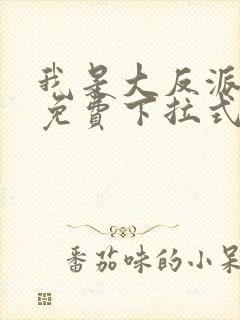 我是大反派
免費下拉式
番茄味的小呆